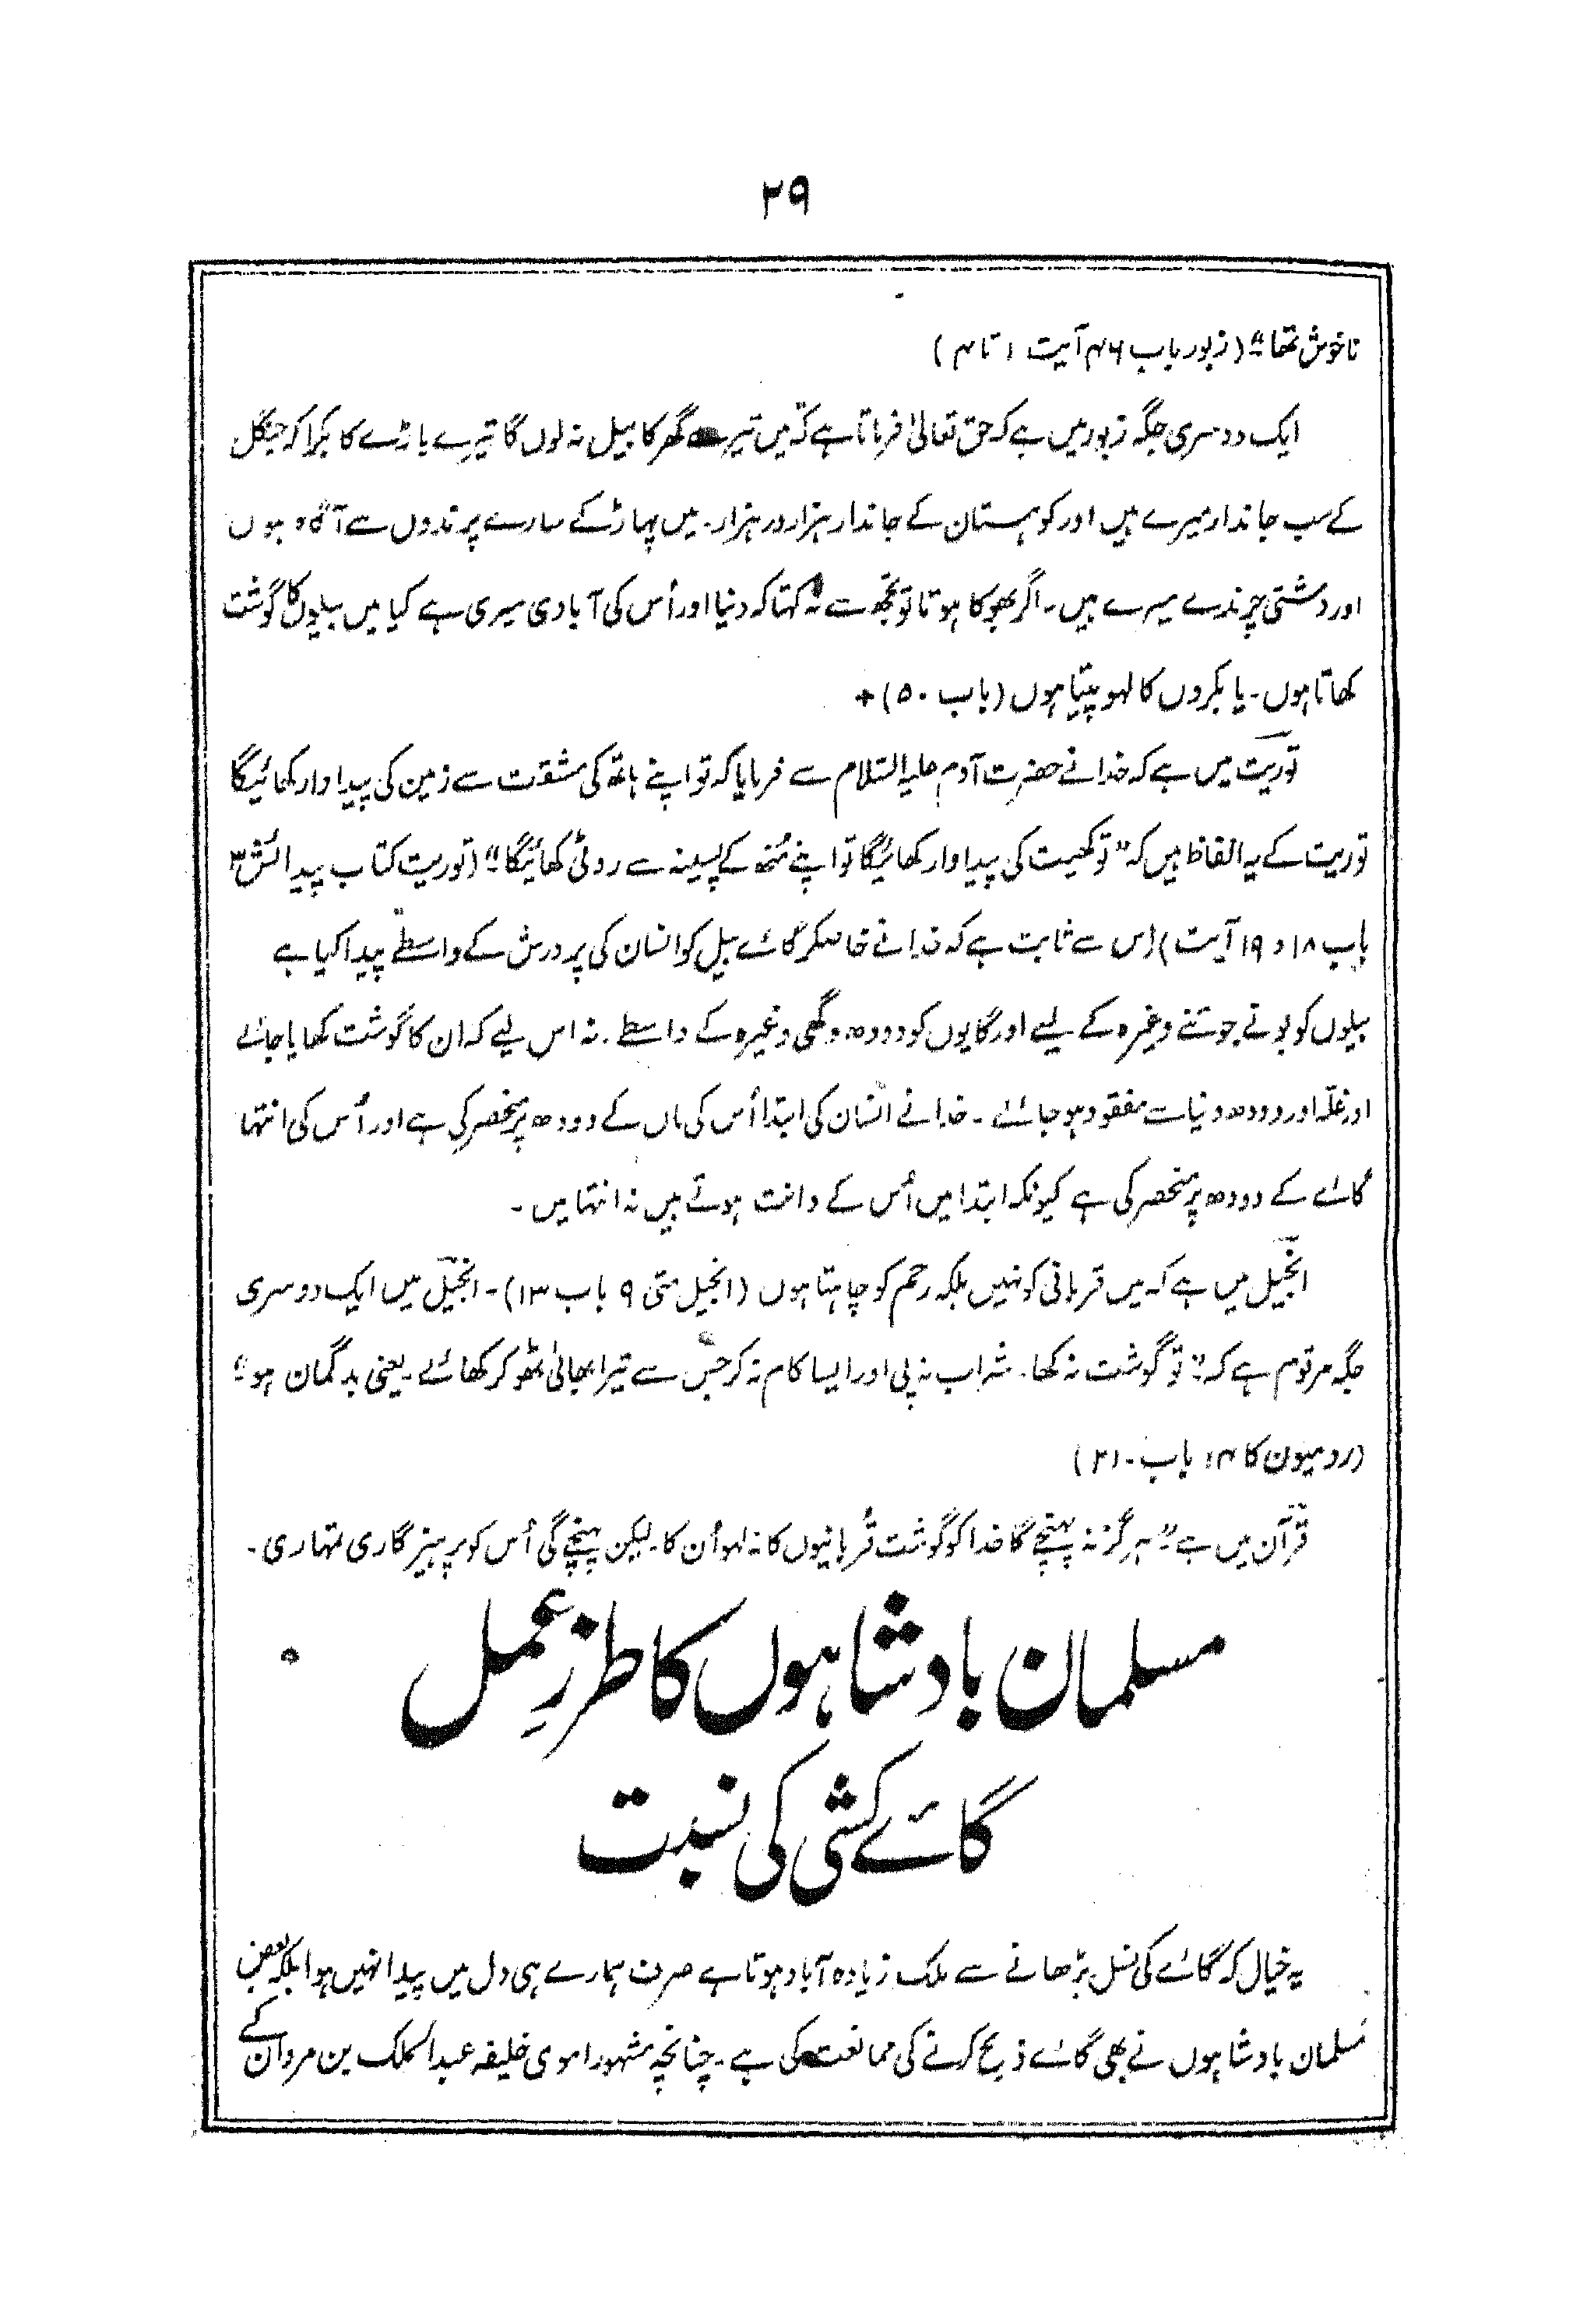 ۲۹
ناخوش تھا" (زبور باب ۴۶ آیت ۱ تا ۴)
ایک دوسری جگہ زبور میں ہے کہ حق تعالیٰ فرماتا ہے کہ میں تیرے گھر کا بیل نہ لوں گا تیرے باڑے کا بکرا کہ جنگل
کے سب جاندار میرے ہیں اور کوہستان کے جاندار ہزار در ہزار۔ میں پہاڑ کے سارے پرندوں سے آگاہ ہوں
اور دشتی چرندے میرے ہیں۔ اگر بھوکا ہوتا تو تجھ سے نہ کہتا کہ دنیا اور اُس کی آبادی میری ہے کیا میں بیلوں کا گوشت
کھاتا ہوں۔ یا بکروں کا لہو پیتا ہوں (باب ۵۰) +
توریت میں ہے کہ خدا نے حضرت آدم علیہ السّلام سے فرمایا کہ تو اپنے ہاتھ کی مشقت سے زمین کی پیداوار کھائیگا
توریت کے یہ الفاظ ہیں کہ "تو کھیت کی پیداوار کھائیگا تو اپنے مُنھ کے پسینہ سے روٹی کھائیگا" (توریت کتاب پیدائش ۳
باب ۱۸ و ۱۹ آیت) اس سے ثابت ہے کہ خدا نے خاصکر گائے بیل کو انسان کی پرورش کے واسطے پیدا کیا ہے
بیلوں کو بونے جوتنے وغیرہ کے لیے اور گایوں کو دودھ و گھی وغیرہ کے واسطے۔ نہ اس لیے کہ ان کا گوشت کھایا جائے
اور غلّہ اور دودھ دنیا سے مفقود ہو جائے۔ خدا نے انسان کی ابتدا اُس کی ماں کے دودھ پر منحصر کی ہے اور اُس کی انتہا
گائے کے دودھ پر منحصر کی ہے کیونکہ ابتدا میں اُس کے دانت ہوتے ہیں نہ انتہا میں۔
انجیل میں ہے کہ میں قربانی کو نہیں بلکہ رحم کو چاہتا ہوں (انجیل متی ۹ باب ۱۳)۔ انجیل میں ایک دوسری
جگہ مرقوم ہے کہ "تو گوشت نہ کھا۔ شراب نہ پی اور ایسا کام نہ کر جس سے تیرا بھائی ٹھوکر کھائے۔ یعنی بدگمان ہو"
(رومیون کا ۱۴ باب۔ ۲۱)
قرآن میں ہے "ہرگز نہ پہنچے گا خدا کو گوشت قُربانیوں کا نہ لہو اُن کا۔ لیکن پہنچے گی اُس کو پرہیزگاری تمہاری۔
مسلمان بادشاہوں کا طرزِ عمل
گائے کشی کی نسبت
یہ خیال کہ گائے کی نسل بڑھانے سے ملک زیادہ آباد ہوتا ہے صرف ہمارے ہی دل میں پیدا نہیں ہوا بلکہ بعض
مسلمان بادشاہوں نے بھی گائے ذبح کرنے کی ممانعت کی ہے۔ چنانچہ مشہور اموی خلیفہ عبدالملک بن مروان کے